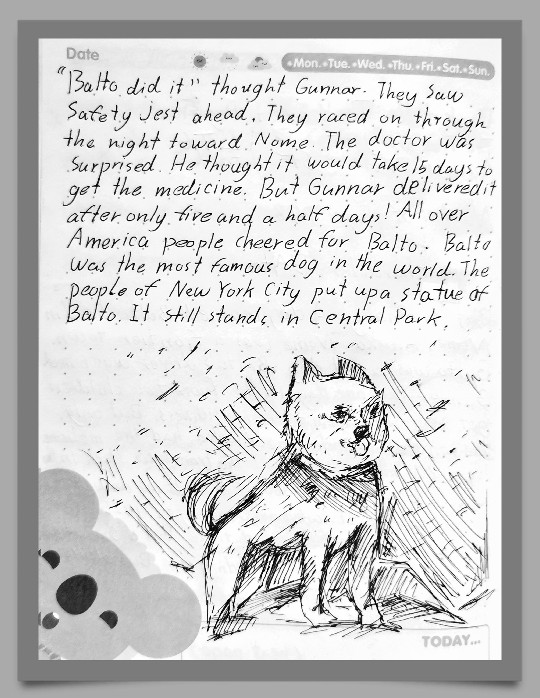 Date
•Mon.•Tue.•Wed.•Thu.•Fri.•Sat.•Sun.
"Balto did it" thought Gunnar. They saw
Safety Jest ahead. They raced on through
the night toward Nome. The doctor was
Surprised. He thought it would take 15 days to
get the medicine. But Gunnar delivered it
after only five and a half days! All over
America people cheered for Balto. Balto
was the most famous dog in the world. The
people of New York City put up a statue of
Balto. It still stands in Central Park.
TODAY...